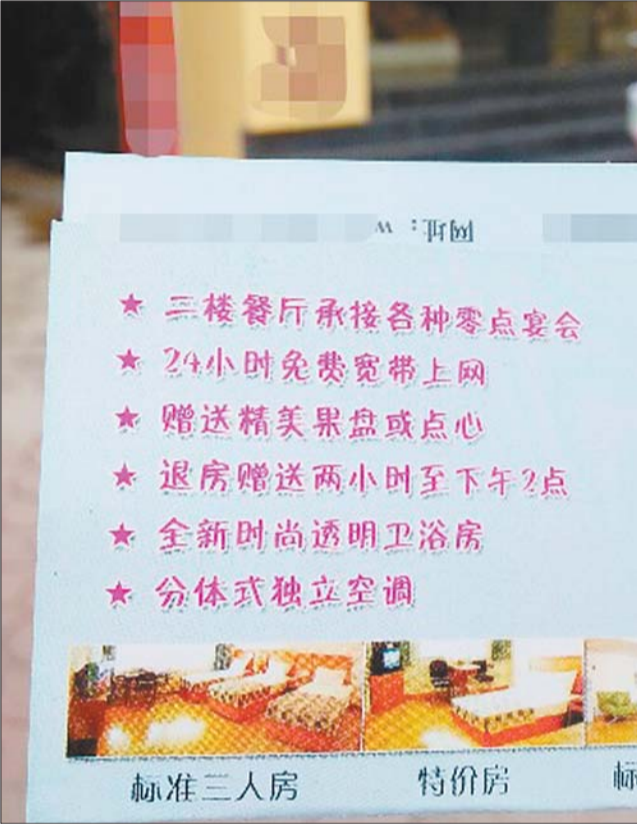 网址: w
★ 二楼餐厅承接各种零点宴会
★ 24小时免费宽带上网
★ 赠送精美果盘或点心
★ 退房赠送两小时至下午2点
★ 全新时尚透明卫浴房
★ 分体式独立空调
标准三人房 特价房 标